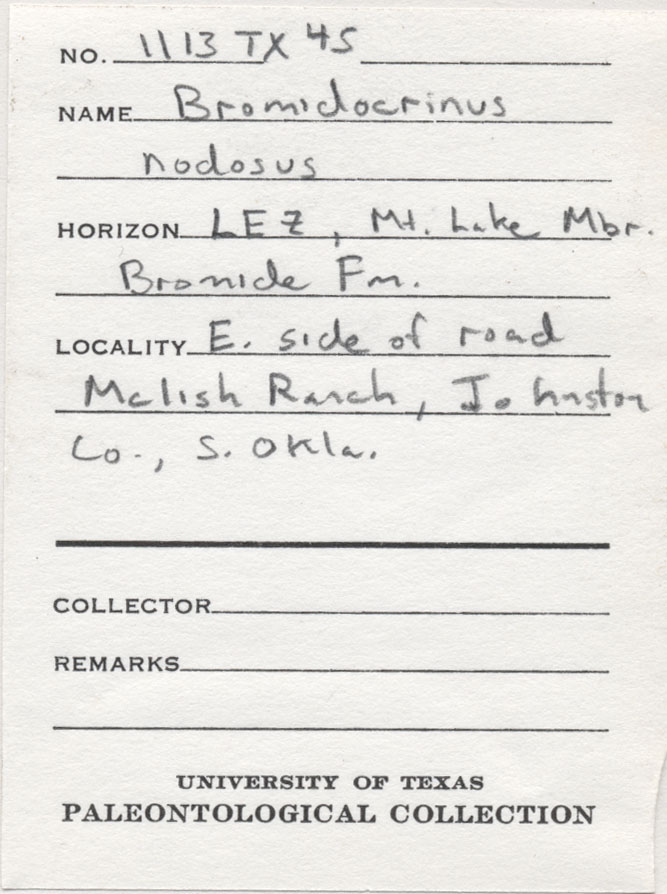 NO. 1113 TX 45
NAME Bromidocrinus
nodosus
HORIZON LEZ, Mt. Lake Mbr.
Bromide Fm.
LOCALITY E. side of road
Mclish Ranch, Johnston
Co., S. Okla.
COLLECTOR
REMARKS
UNIVERSITY OF TEXAS
PALEONTOLOGICAL COLLECTION